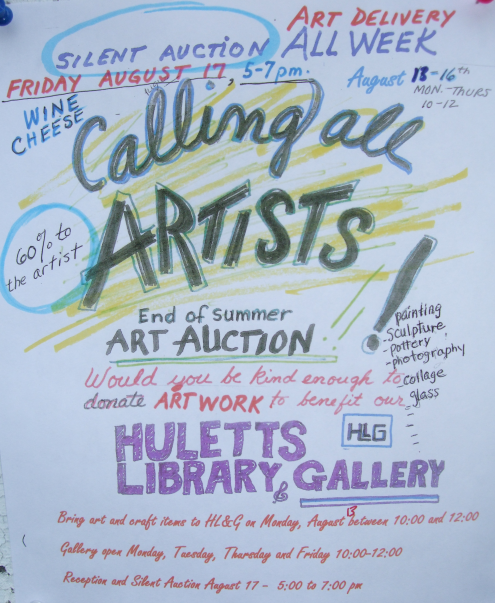 SILENT AUCTION
FRIDAY AUGUST 17, 5-7pm.
WINE
CHEESE
ART DELIVERY
ALL WEEK
August 13-16th
MON.-THURS
10-12
Calling all
ARTISTS!
60% to
the artist
End of summer
ART AUCTION
painting
-Sculpture
-pottery
-photography
collage
glass
Would you be kind enough to
donate ART WORK to benefit our
HULETTS
HLG
LIBRARY & GALLERY
Bring art and craft items to HL&G on Monday, August 13 between 10:00 and 12:00
Gallery open Monday, Tuesday, Thursday and Friday 10:00-12:00
Reception and Silent Auction August 17 - 5:00 to 7:00 pm